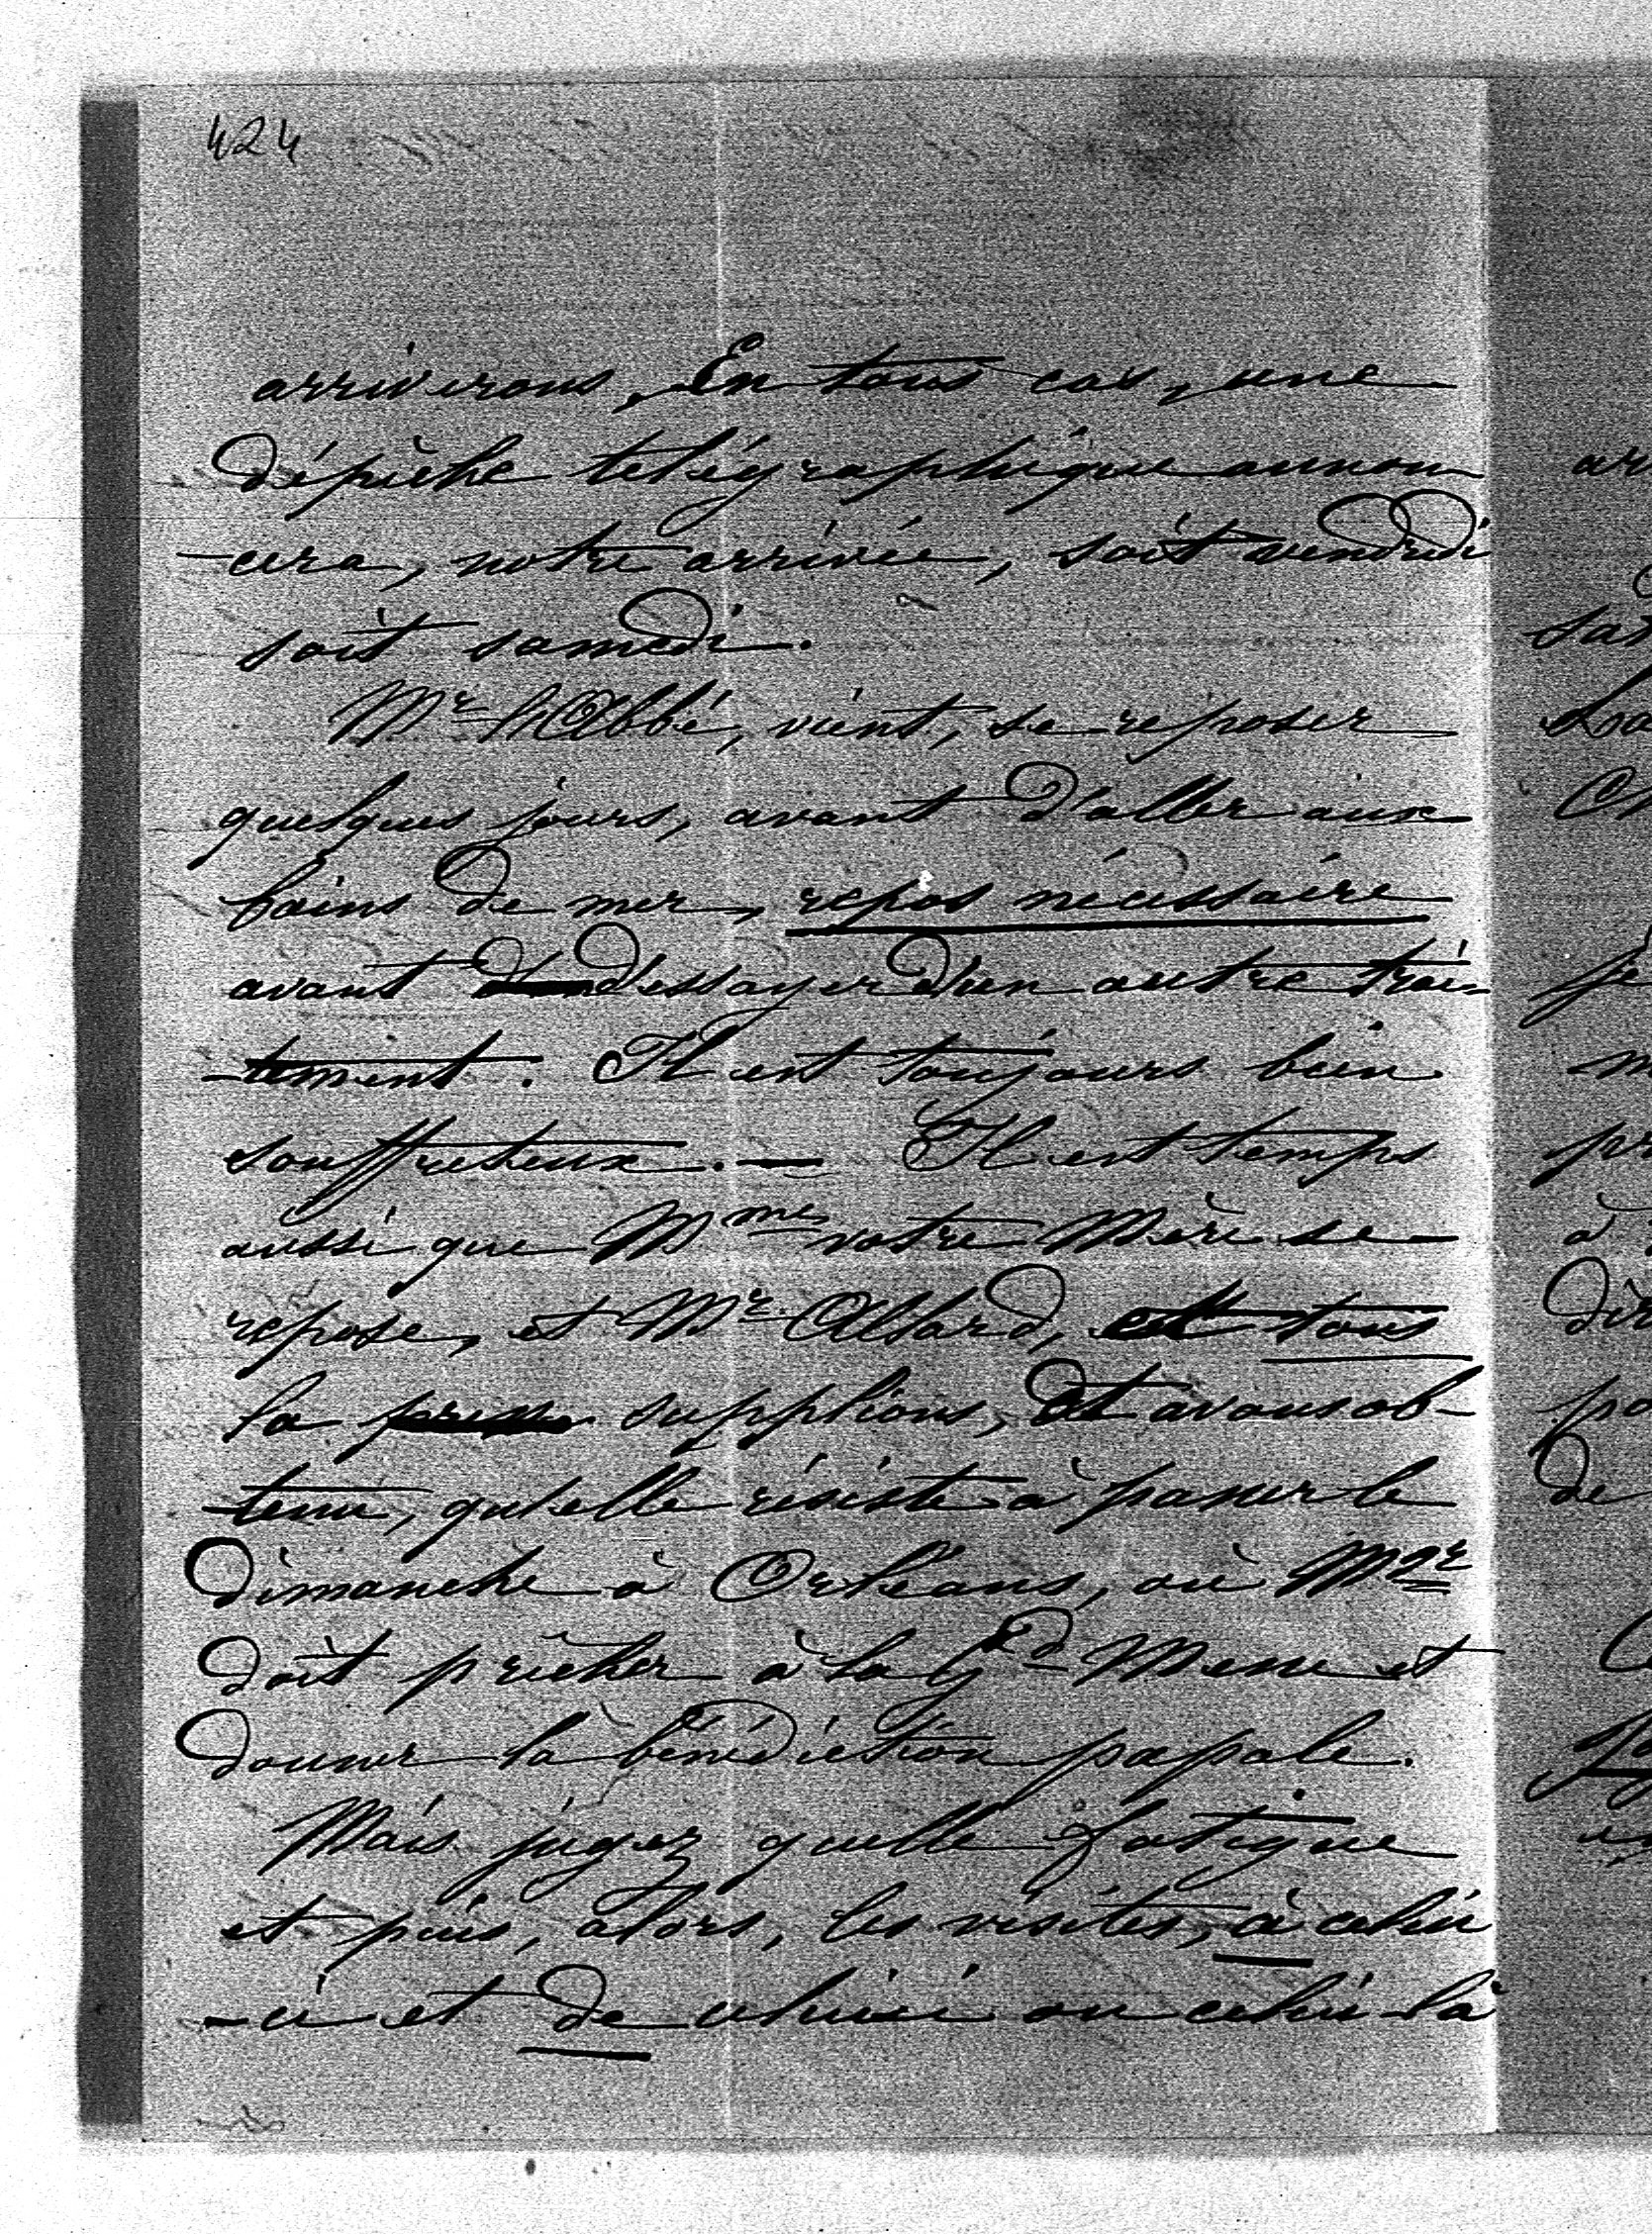 424
arriverons, En tous cas, une
dépêche telégraphique annon-
-cera, notre arrivée, soit vendredi
soit samedi.
Mr L'Abbé, vient, se reposer
quelques jours, avant d'aller aux
bains de mer, repos nécessaire
avant d'essayer d'un autre trai-
-tement. Il est toujours bien
souffreteux. — Il est temps
aussi que Mme votre Mère se
repose, et Mr Allard, et tous
la supplions, et avons ob-
-tenu, qu'elle résiste à passer le
Dimanche à Orléans, où Mgr
doit prêcher à la Gd Messe et
donner la bénédiction papale.
Mais jugez quelle fatigue
et puis, alors, les visites, à celui
-ci et de celui-ci ou celui-là